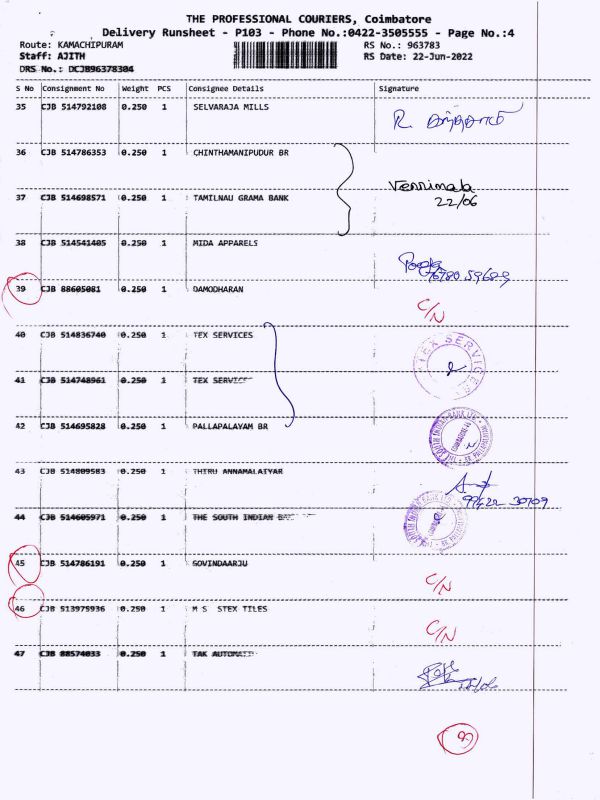 THE PROFESSIONAL COURIERS, Coimbatore
Delivery Runsheet - P103 - Phone No.:0422-3505555 - Page No.:4
Route: KAMACHIPURAM RS No.: 963783
Staff: AJITH RS Date: 22-Jun-2022
DRS No.: DCJB96378304
S No Consignment No Weight PCS Consignee Details Signature
35 CJB 514792108 0.250 1 SELVARAJA MILLS
R.
36 CJB 514786353 0.250 1 CHINTHAMANIPUDUR BR
37 CJB 514698571 0.250 1 TAMILNAU GRAMA BANK
22/06
38 CJB 514541405 0.250 1 MIDA APPARELS
39 CJB 88605081 0.250 1 DAMODHARAN
C/N
40 CJB 514836740 0.250 1 TEX SERVICES
TEX SERVICES
41 CJB 514748961 0.250 1 TEX SERVICES
42 CJB 514695828 0.250 1 PALLAPALAYAM BR
43 CJB 514809583 0.250 1 THIRU ANNAMALAIYAR
99422 30709
44 CJB 514605971 0.250 1 THE SOUTH INDIAN
45 CJB 514786191 0.250 1 GOVINDAARJU
C/N
46 CJB 513975936 0.250 1 M S STEX TILES
C/N
47 CJB 88574033 0.250 1 TAK AUTOMATI